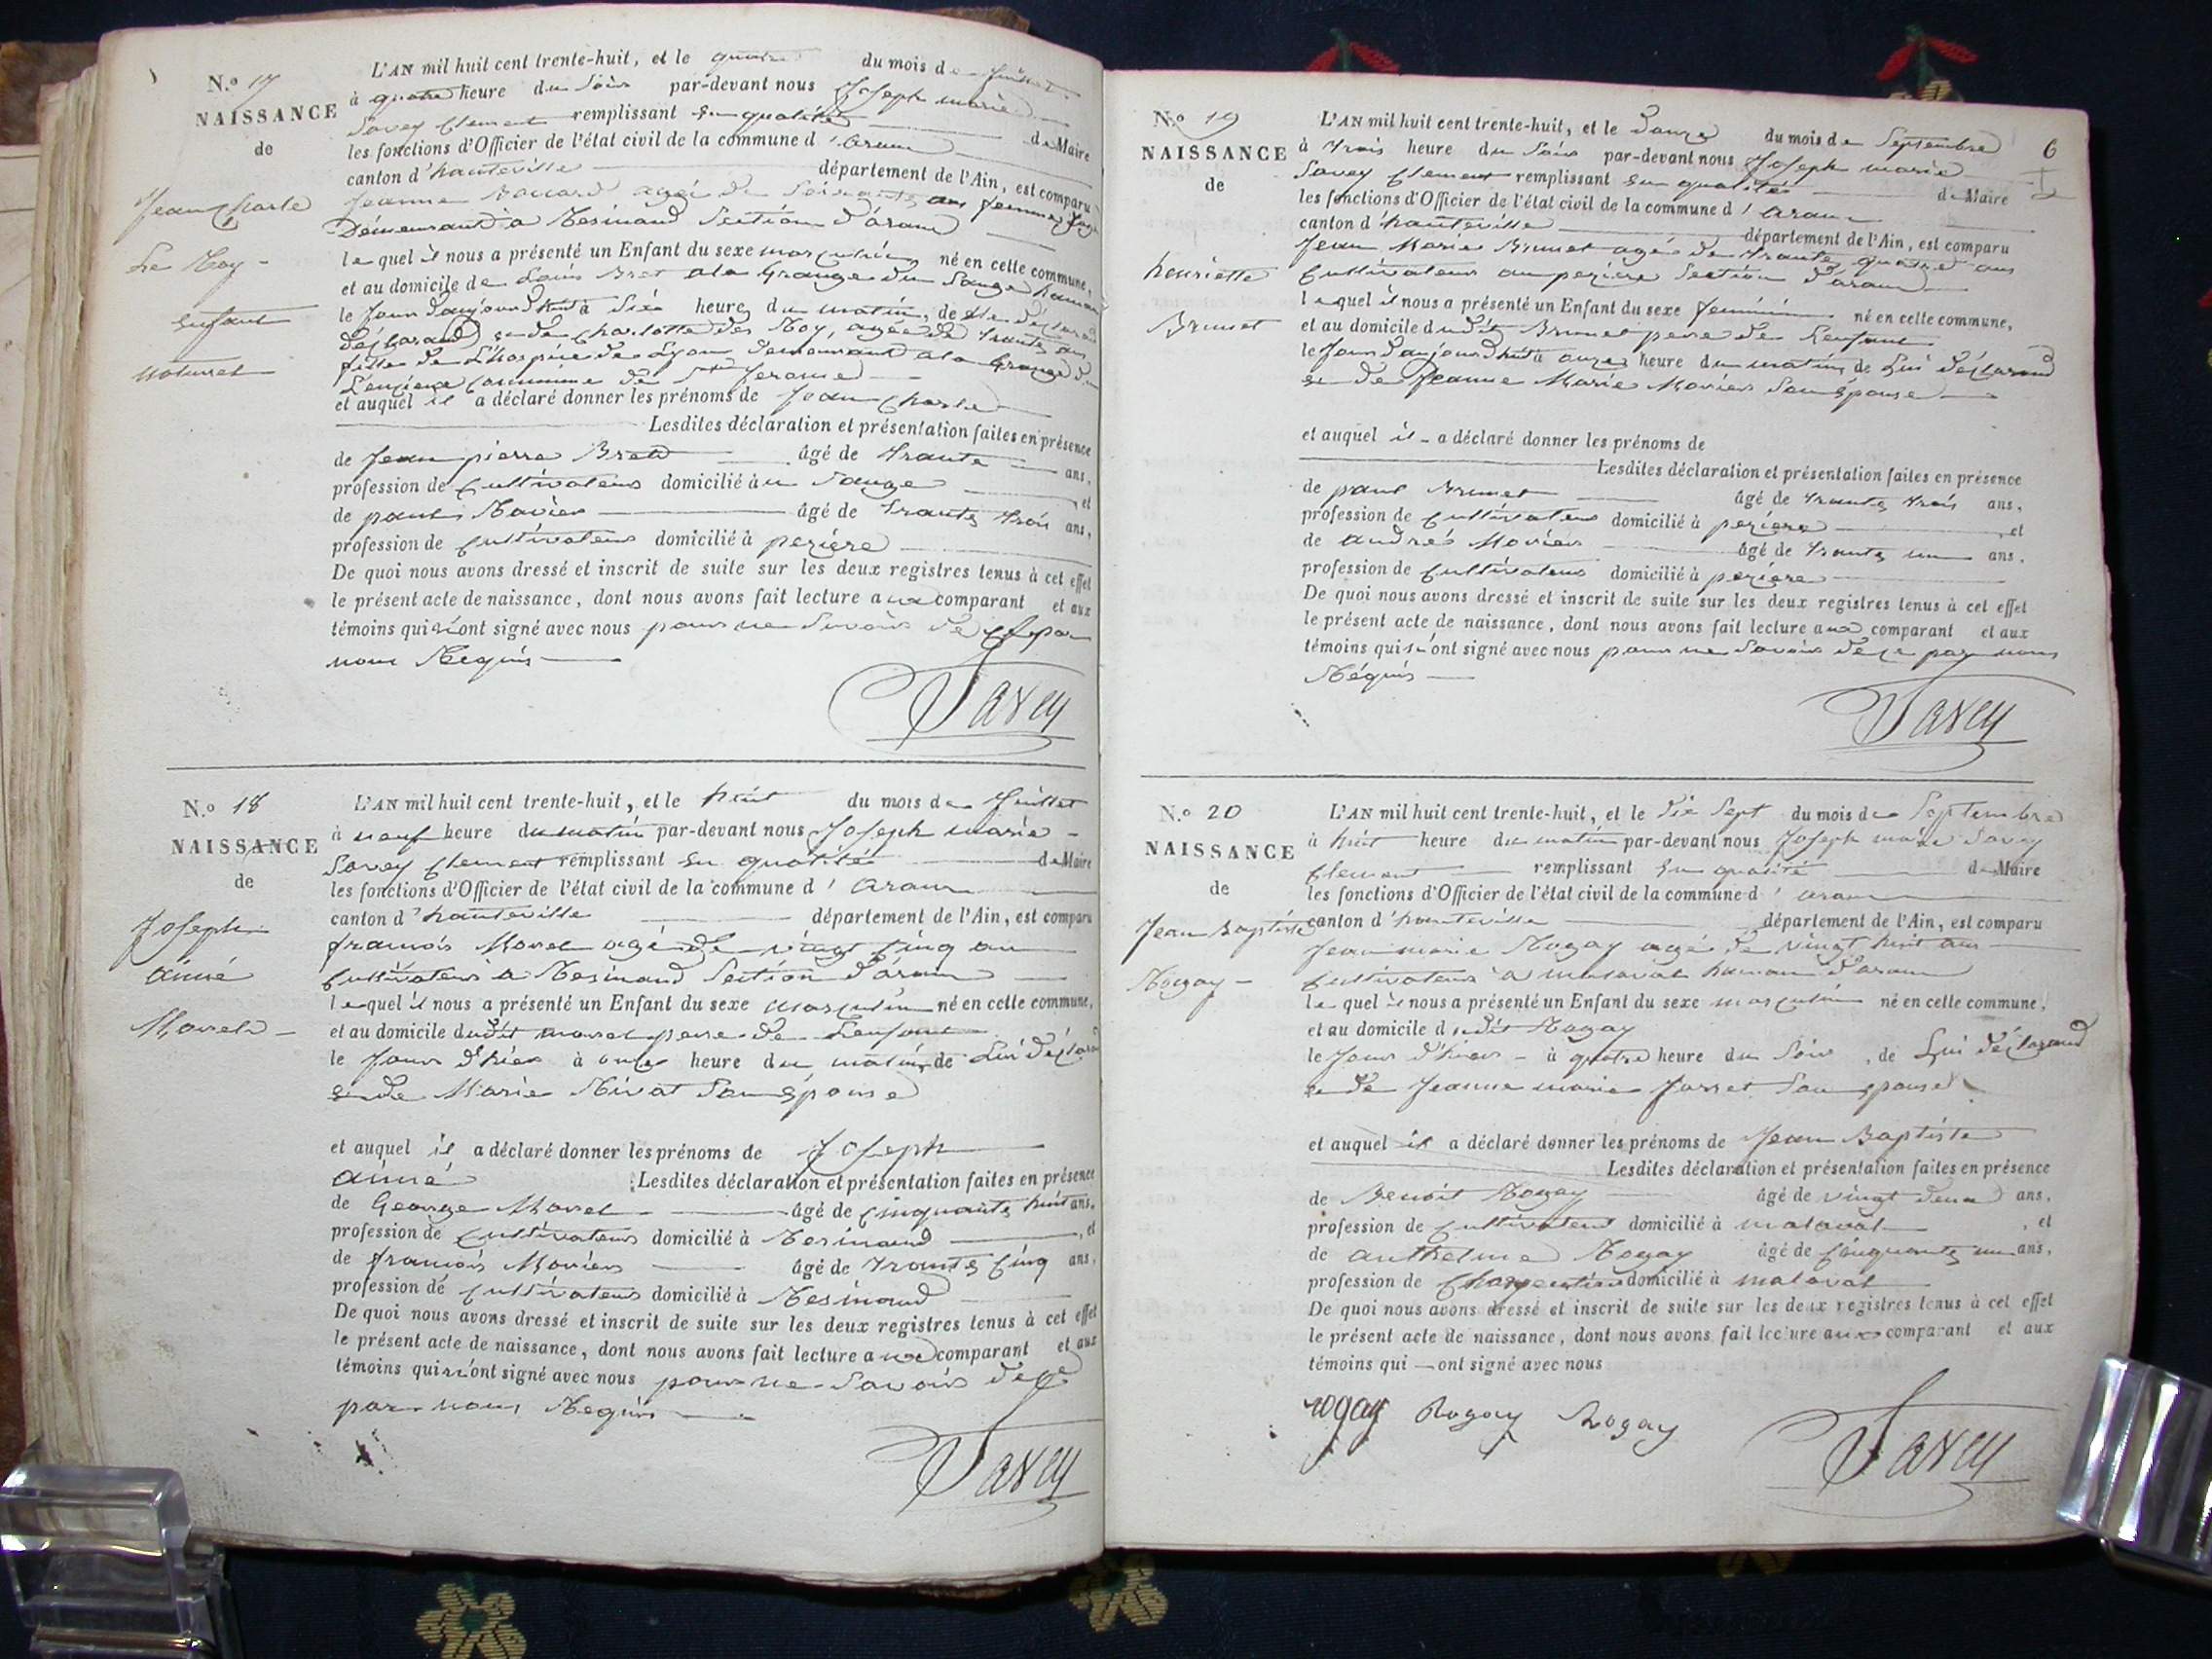 N.o 17
NAISSANCE
de
Jean Charle
Le Roy -
enfant
naturel
L'AN mil huit cent trente-huit, et le quatre du mois de Juillet
à quatre heure du Soir par-devant nous Joseph marie
Savey Clement remplissant en qualité de Maire
les fonctions d'Officier de l'état civil de la commune d'aranc
canton d'hauteville département de l'Ain, est comparu
Jeanne agée de Soixante ans femme
Demeurant a Resinand Section d'aranc
lequel il nous a présenté un Enfant du sexe masculin né en cette commune,
et au domicile de Louis Bret a la Grange du Sauge hamau
le Jour daujourdhui à dixe heure du matin, de
déclarand e de Charlotte des Roy, agée de trante ans
fille de L'hospice de Lyon demeurant a la Grange du
commune de St Jerome
et auquel il a déclaré donner les prénoms de Jean Charle
Lesdites déclaration et présentation faites en présence
de Jean pierre Bret âgé de trante ans,
profession de Cultivateur domicilié à u Sauge et
de paul Ravier âgé de trante trois ans,
profession de Cultivateur domicilié à peziere
De quoi nous avons dressé et inscrit de suite sur les deux registres tenus à cet effet
le présent acte de naissance, dont nous avons fait lecture aux comparant et aux
témoins qui n'ont signé avec nous pour ne Savoir de ce par
nous Requis
Savey
N.o 18
NAISSANCE
de
Joseph
aimé
Morel -
L'AN mil huit cent trente-huit, et le huit du mois de Juillet
à neuf heure du matin par-devant nous Joseph marie -
Savey Clement remplissant en qualité de Maire
les fonctions d'Officier de l'état civil de la commune d'aranc
canton d'hauteville département de l'Ain, est comparu
francois Morel agé de vingt Cinq an
Cultivateur a Resinand Section d'aranc
lequel il nous a présenté un Enfant du sexe masculin né en cette commune,
et au domicile dudit morel pere de Lenfant
le Jour d'hier à onze heure du matin, de Lui déclarand
e de Marie Nivat Son épouse
et auquel il a déclaré donner les prénoms de Joseph
aimé Lesdites déclaration et présentation faites en présence
de George Morel âgé de Cinquante huit ans,
profession de Cultivateur domicilié à Resinand , et
de francois Movier âgé de trante Cinq ans,
profession de Cultivateur domicilié à Resinand
De quoi nous avons dressé et inscrit de suite sur les deux registres tenus à cet effet
le présent acte de naissance, dont nous avons fait lecture aux comparant et aux
témoins qui n'ont signé avec nous pour ne Savoir de ce
par nous Requis
Savey
6
N.o 19
NAISSANCE
de
henriette
Brunet
L'AN mil huit cent trente-huit, et le Douze du mois de Septembre
à trois heure du Soir par-devant nous Joseph marie
Savey Clement remplissant en qualité de Maire
les fonctions d'Officier de l'état civil de la commune d'aranc
canton d'hauteville département de l'Ain, est comparu
Jean Marie Brunet agé de trante quatre ans
Cultivateur au peziere Section d'aranc
lequel il nous a présenté un Enfant du sexe feminin né en cette commune,
et au domicile dudit Brunet pere de Lenfant
le Jour daujourdhui à onze heure du matin, de Lui déclarand
e de Jeanne Marie Movier Son épouse
et auquel il a déclaré donner les prénoms de
Lesdites déclaration et présentation faites en présence
de paul Brunet âgé de trante trois ans,
profession de Cultivateur domicilié à peziere et
de andré Movier âgé de trante un ans,
profession de Cultivateur domicilié à peziere
De quoi nous avons dressé et inscrit de suite sur les deux registres tenus à cet effet
le présent acte de naissance, dont nous avons fait lecture aux comparant et aux
témoins qui n'ont signé avec nous pour ne Savoir de ce par nous
Réquis
Savey
N.o 20
NAISSANCE
de
Jean Baptiste
Rogay -
L'AN mil huit cent trente-huit, et le Dix Sept du mois de Septembre
à huit heure du matin par-devant nous Joseph marie Savey
Clement remplissant en qualité de Maire
les fonctions d'Officier de l'état civil de la commune d'aranc
canton d'hauteville département de l'Ain, est comparu
Jean marie Rogay agé de vingt huit ans
Cultivateur a malaval hamau d'aranc
lequel il nous a présenté un Enfant du sexe masculin né en cette commune,
et au domicile dudit Rogay
le Jour d'hier - à quatre heure du Soir, de Lui déclarand
e de Jeanne marie Jarret Son epouse
et auquel il a déclaré donner les prénoms de Jean Baptiste
Lesdites déclaration et présentation faites en présence
de Benoit Rogay âgé de vingt deux ans,
profession de Cultivateur domicilié à malaval , et
de anthelme Rogay âgé de Cinquante un ans,
profession de Charpentier domicilié à malaval
De quoi nous avons dressé et inscrit de suite sur les deux registres tenus à cet effet
le présent acte de naissance, dont nous avons fait lecture aux comparant et aux
témoins qui — ont signé avec nous
rogay Rogay Rogay
Savey